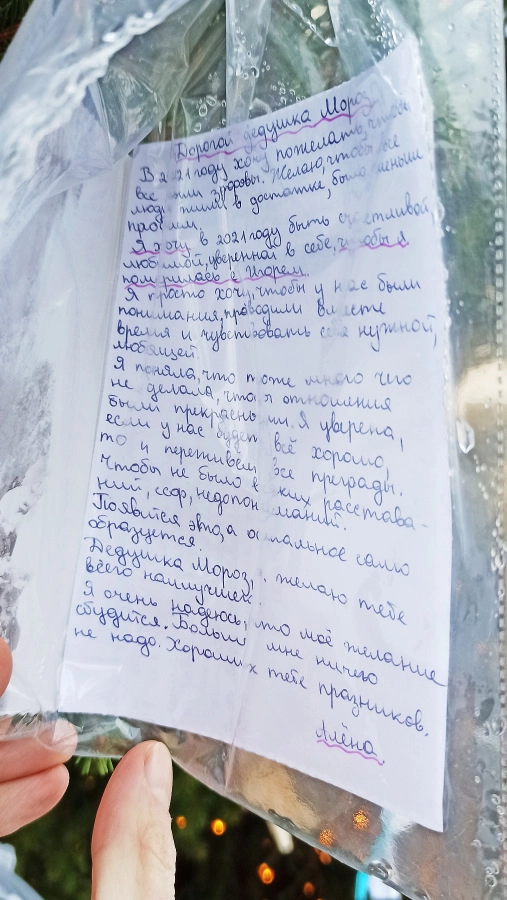 Дорогой дедушка Мороз
В 2021 году хочу пожелать, чтобы
все были здоровы. Желаю, чтобы все
люди жили в достатке, было меньше
проблем.
Я хочу в 2021 году быть счастливой,
любимой, уверенной в себе, чтобы я
помирилась с Игорем.
Я просто хочу, чтобы у нас были
понимания, проводили вместе
время и чувствовать себя нужной,
любящей.
Я поняла, что тоже много чего
не делала, чтоб отношения
были прекрасными. Я уверена,
если у нас будет всё хорошо,
то и переживём все преграды.
Чтобы не было всяких расстава-
ний, ссор, недопониманий.
Появится это, а остальное само
образуется.
Дедушка Мороз, желаю тебе
всего наилучшего.
Я очень надеюсь, что моё желание
сбудится. Больше мне ничего
не надо. Хороших тебе празников.
Алёна